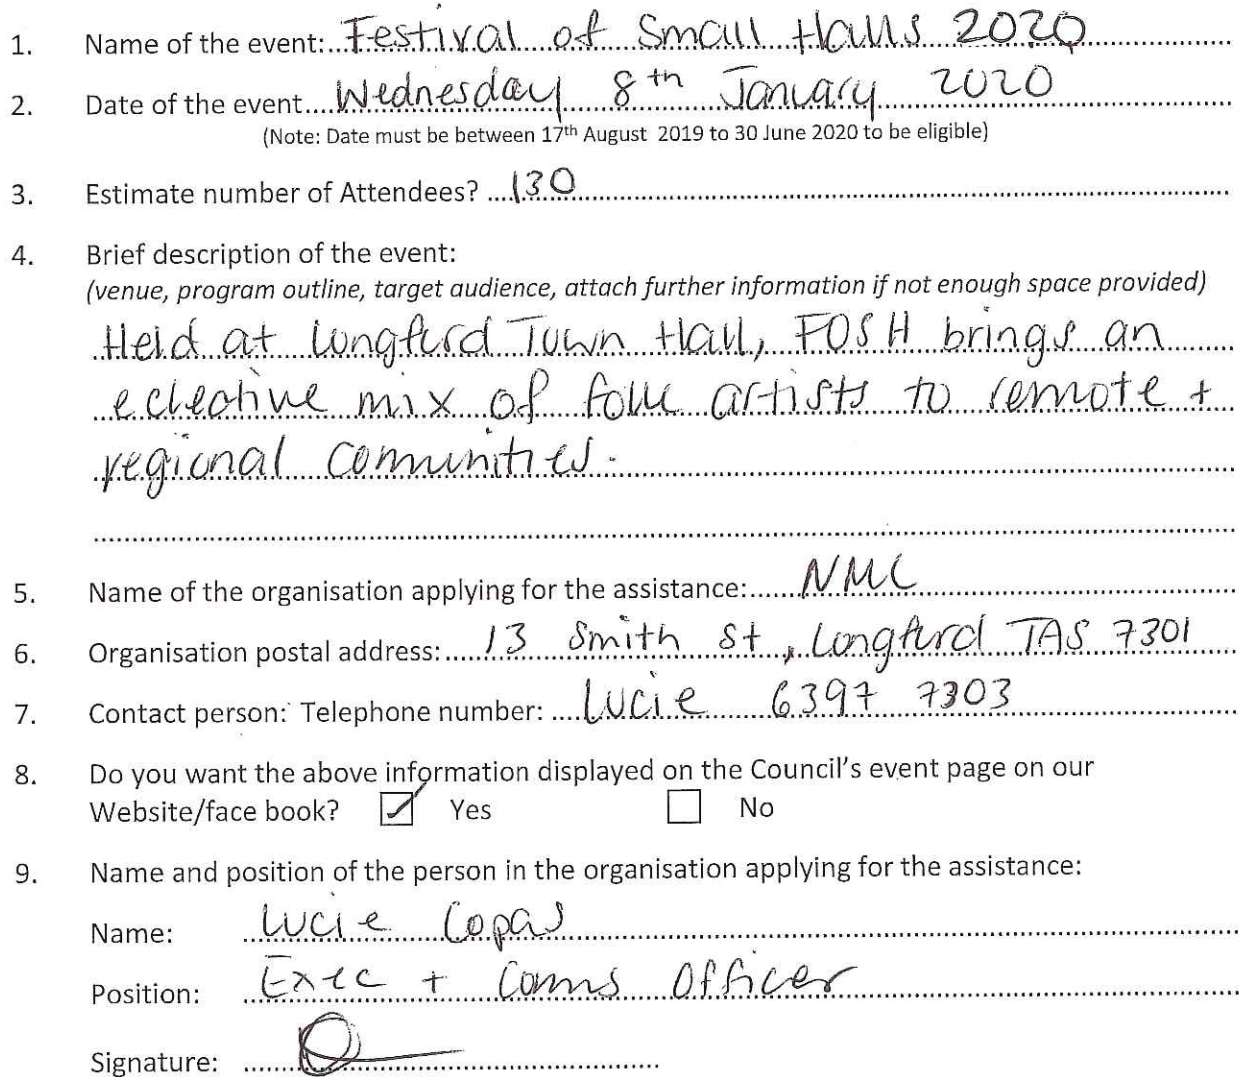 1. Name of the event: Festival of Small Halls 2020
2. Date of the event Wednesday 8th January 2020
(Note: Date must be between 17th August 2019 to 30 June 2020 to be eligible)
3. Estimate number of Attendees? 130
4. Brief description of the event:
(venue, program outline, target audience, attach further information if not enough space provided)
Held at Longford Town Hall, FOSH brings an
eclective mix of folk artists to remote +
regional communities.
5. Name of the organisation applying for the assistance: NMC
6. Organisation postal address: 13 Smith St, Longford TAS 7301
7. Contact person: Telephone number: Lucie 6397 7303
8. Do you want the above information displayed on the Council's event page on our
Website/face book? ☑ Yes ☐ No
9. Name and position of the person in the organisation applying for the assistance:
Name: Lucie Copas
Position: Exec + Comms Officer
Signature: